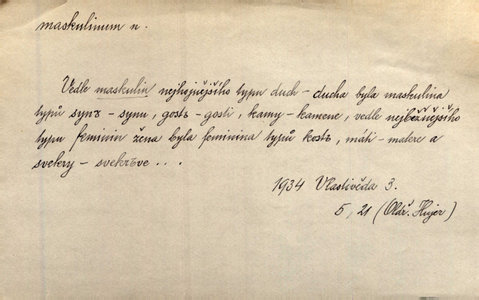 maskulinum n.
Vedle maskulin nejhojnějšího typu duch - ducha byla maskulina
typů synъ - synu, gostь - gosti, kamy - kamene, vedle nejběžnějšího
typu feminin žena byla feminina typů kostь, máti - matere a
svekry - svekrъve ...
1934 Vlastivěda 3.
5, 21 (Oldř. Hujer)